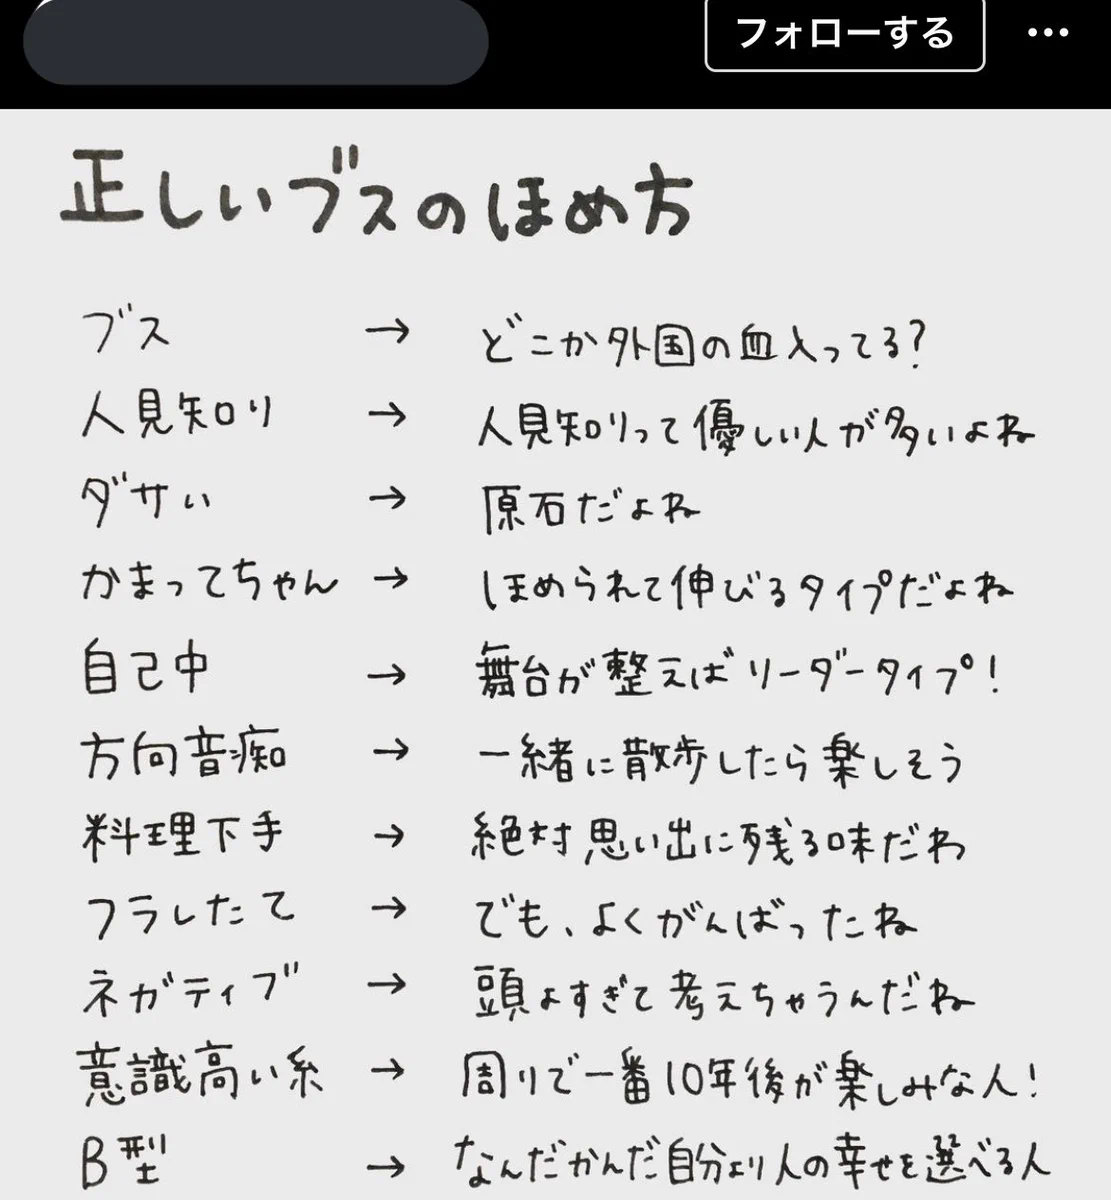 フォローする
正しいブスのほめ方
ブス → どこか外国の血入ってる?
人見知り → 人見知りって優しい人が多いよね
ダサい → 原石だよね
かまってちゃん → ほめられて伸びるタイプだよね
自己中 → 舞台が整えばリーダータイプ!
方向音痴 → 一緒に散歩したら楽しそう
料理下手 → 絶対思い出に残る味だわ
フラしたて → でも、よくがんばったね
ネガティブ → 頭よすぎて考えちゃうんだね
意識高い糸 → 周りで一番10年後が楽しみな人!
B型 → なんだかんだ自分より人の幸せを選べる人